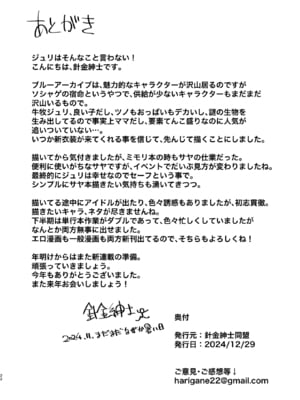 あとがき
ジュリはそんなこと言わない！
こんにちは、針金紳士です。
ブルーアーカイブは、魅力的なキャラクターが沢山居るのですが
ソシャゲの宿命というやつで、供給が少ないキャラクターもまだまだ
沢山いるもので。
牛牧ジュリ、良い子だし、ツノもおっぱいもデカいし、謎の生物を
生み出してるので事実上ママだし、要素てんこ盛りなのに人気が
追いついていない…。
いつか新衣装が来てくれる事を信じて、先んじて描くことにしました。
描いてから気付きましたが、ミモリ本の時もサヤの仕業だった。
便利に使いがちなサヤですが、イベントでだいぶ見方が変わりましたね。
最終的にジュリは幸せなのでセーフという事で。
シンプルにサヤ本描きたい気持ちも湧いてきつつ。
描いてる途中にアイドルが出たり、色々誘惑もありましたが、初志貫徹。
描きたいキャラ、ネタが尽きませんね。
下半期は単行本作業がダブルであって、色々忙しくしていましたが
なんとか両方無事に出せました。
エロ漫画も一般漫画も両方新刊出てるので、そちらもよろしくね！
年明けからはまた新連載の準備。
頑張っていきましょう。
今年もありがとうございました。
また来年お会いしましょう！
針金紳士
2024.11.
奥付
発行元：針金紳士同盟
発行日：2024/12/29
ご意見・ご感想等↓
harigane22@gmail.com